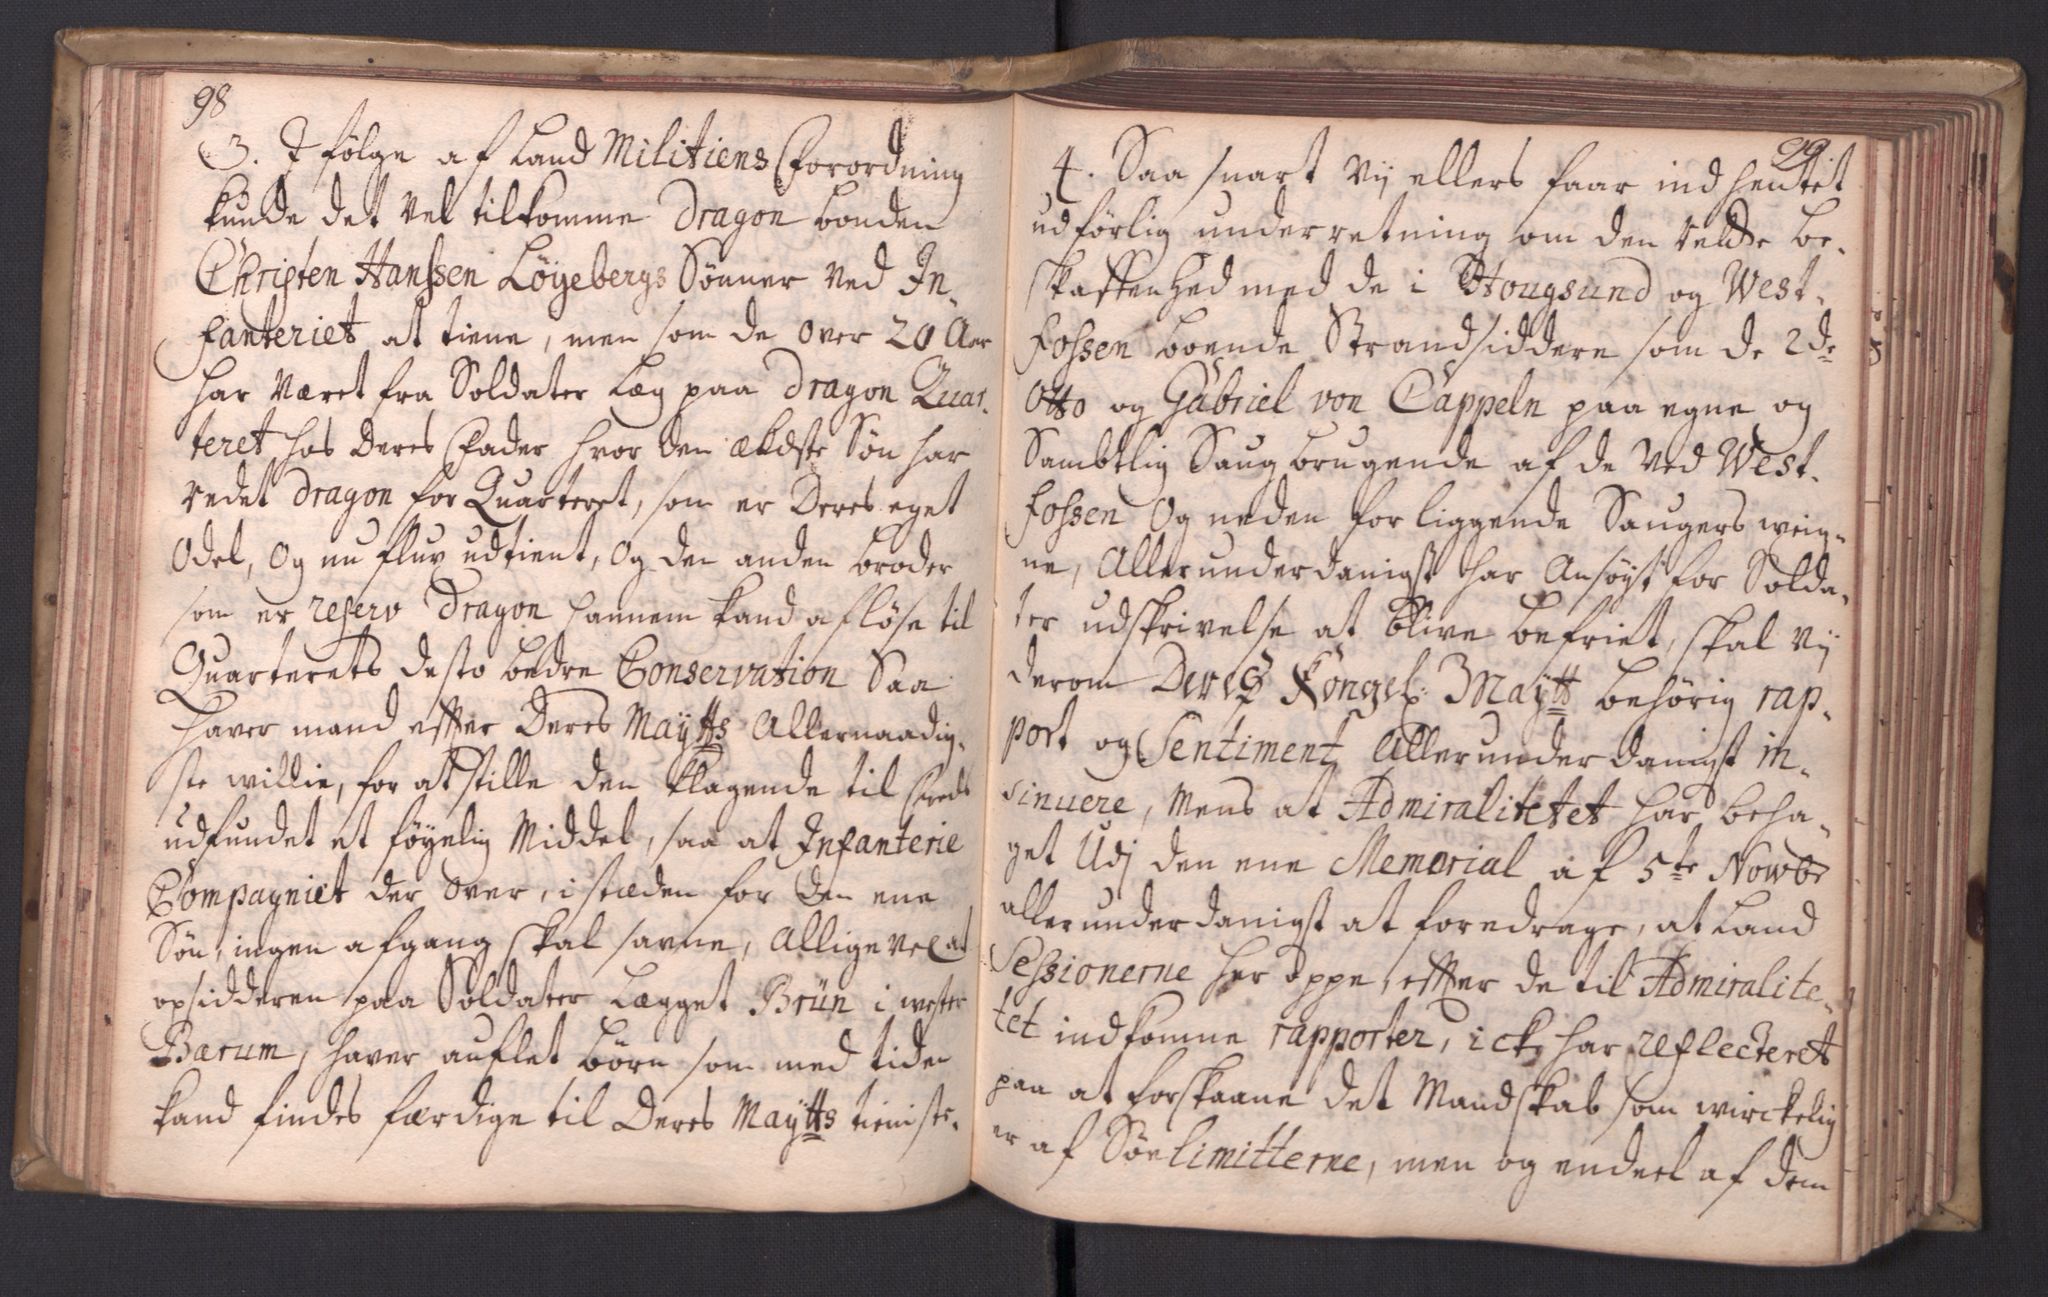 98
3. I følge af Land Militiens Forordning
kunde det vel tilkomme Dragon bonden
Christen Hanssen Løyebergs Sønner ved In-
fanteriet at tiene, men som de over 20 Aar
har været fra Soldater Læg paa Dragon Quar-
teret hos Deres Fader hvor den ældste Søn har
redet Dragon for Quarteret, som er Deres eget
Odel, og nu flux udtient, og den anden broder
som er reserv Dragon hannem kand afløse til
Quarterets desto bedre Conservation Saa
haver mand efter Deres Maÿtts Allernaadig-
ste willie, for at stille den klagende til freds
udfundet et føyelig Middel, saa at Infanterie
Compagniet der over, i stæden for den ene
Søn, ingen afgang skal savne, Alligevel at
opsidderen paa Soldater Lægget Brün i wester
Bærum, haver auflet børn som med tiden
kand findes færdige til Deres Maÿtts tieniste.
99
4. Saa snart vij ellers faar ind hentet
udførlig underretning om den rette be-
skaffenhed med de i Hougsund og West-
fossen boende Strandsiddere som de 2de
Otto og Gabriel von Cappeln paa egne og
Sambtlig Saug brugende af de ved West-
fossen og neden for liggende Saugers weig-
ne, Allerunderdanigst har Ansøgt for Solda-
ter udskrivelse at blive befriet, skal vij
derom Deres Kongel: Maÿtt behörig rap-
port og Sentiment Allerunderdanigst in-
sinuere, Mens at Admiralitetet har beha-
get Udj den ene Memorial af 5te Novbr
allerunderdanigst at foredrage, at Land
Sessionerne her oppe, efter de til Admiralite-
tet indkomne rapporter, icke har reflecteret
paa at forskaane det Mandskab som wirckelig
er af Søe limitterne, men og endeel af dem